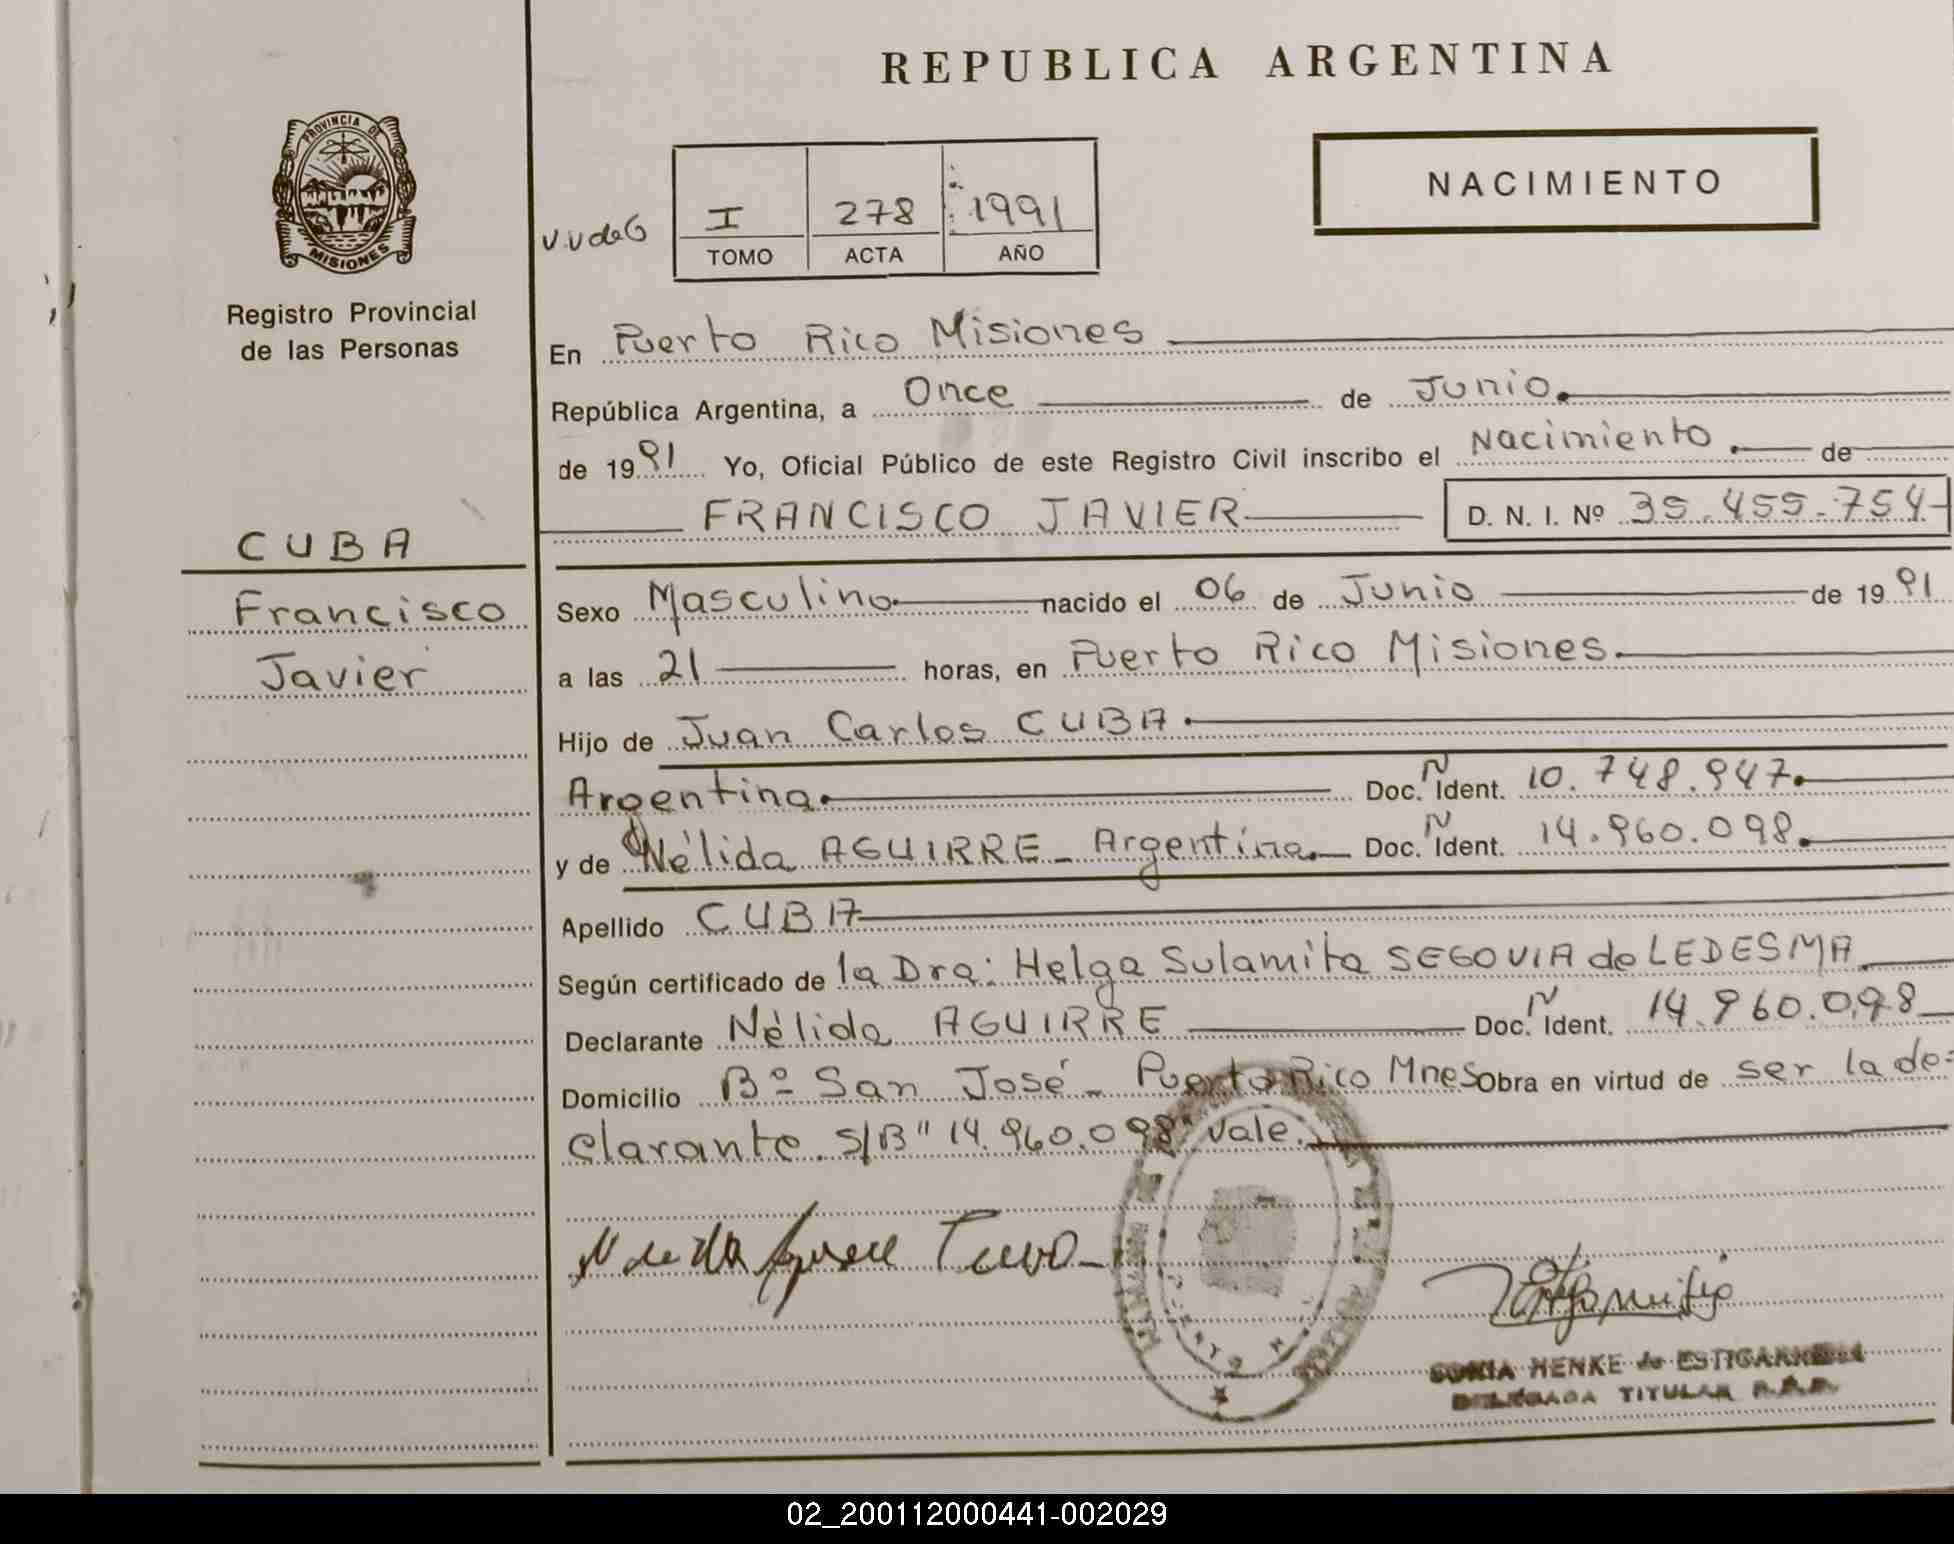 REPUBLICA ARGENTINA
PROVINCIA DE
MISIONES
Registro Provincial
de las Personas
NACIMIENTO
V.V de G
I 278 1991
TOMO ACTA AÑO
En Puerto Rico Misiones
República Argentina, a Once de Junio.
de 1991 Yo, Oficial Público de este Registro Civil inscribo el Nacimiento. de
FRANCISCO JAVIER D. N. I. Nº 35.455.754
CUBA
Francisco
Javier
Sexo Masculino. nacido el 06 de Junio de 1991
a las 21 horas, en Puerto Rico Misiones.
Hijo de Juan Carlos CUBA.
Argentina. Doc. Ñ Ident. 10.748.947.
y de Nélida AGUIRRE - Argentina. Doc. Ñ Ident. 14.960.098.
Apellido CUBA
Según certificado de la Dra: Helga Sulamita SEGOVIA de LEDESMA
Declarante Nélida AGUIRRE Doc. Ñ Ident. 14.960.098
Domicilio Bº San José - Puerto Rico Mnes Obra en virtud de ser la de=
clarante. S/B "14.960.098" Vale.
SONIA HENKE de
DELEGADA TITULAR
02_200112000441-002029